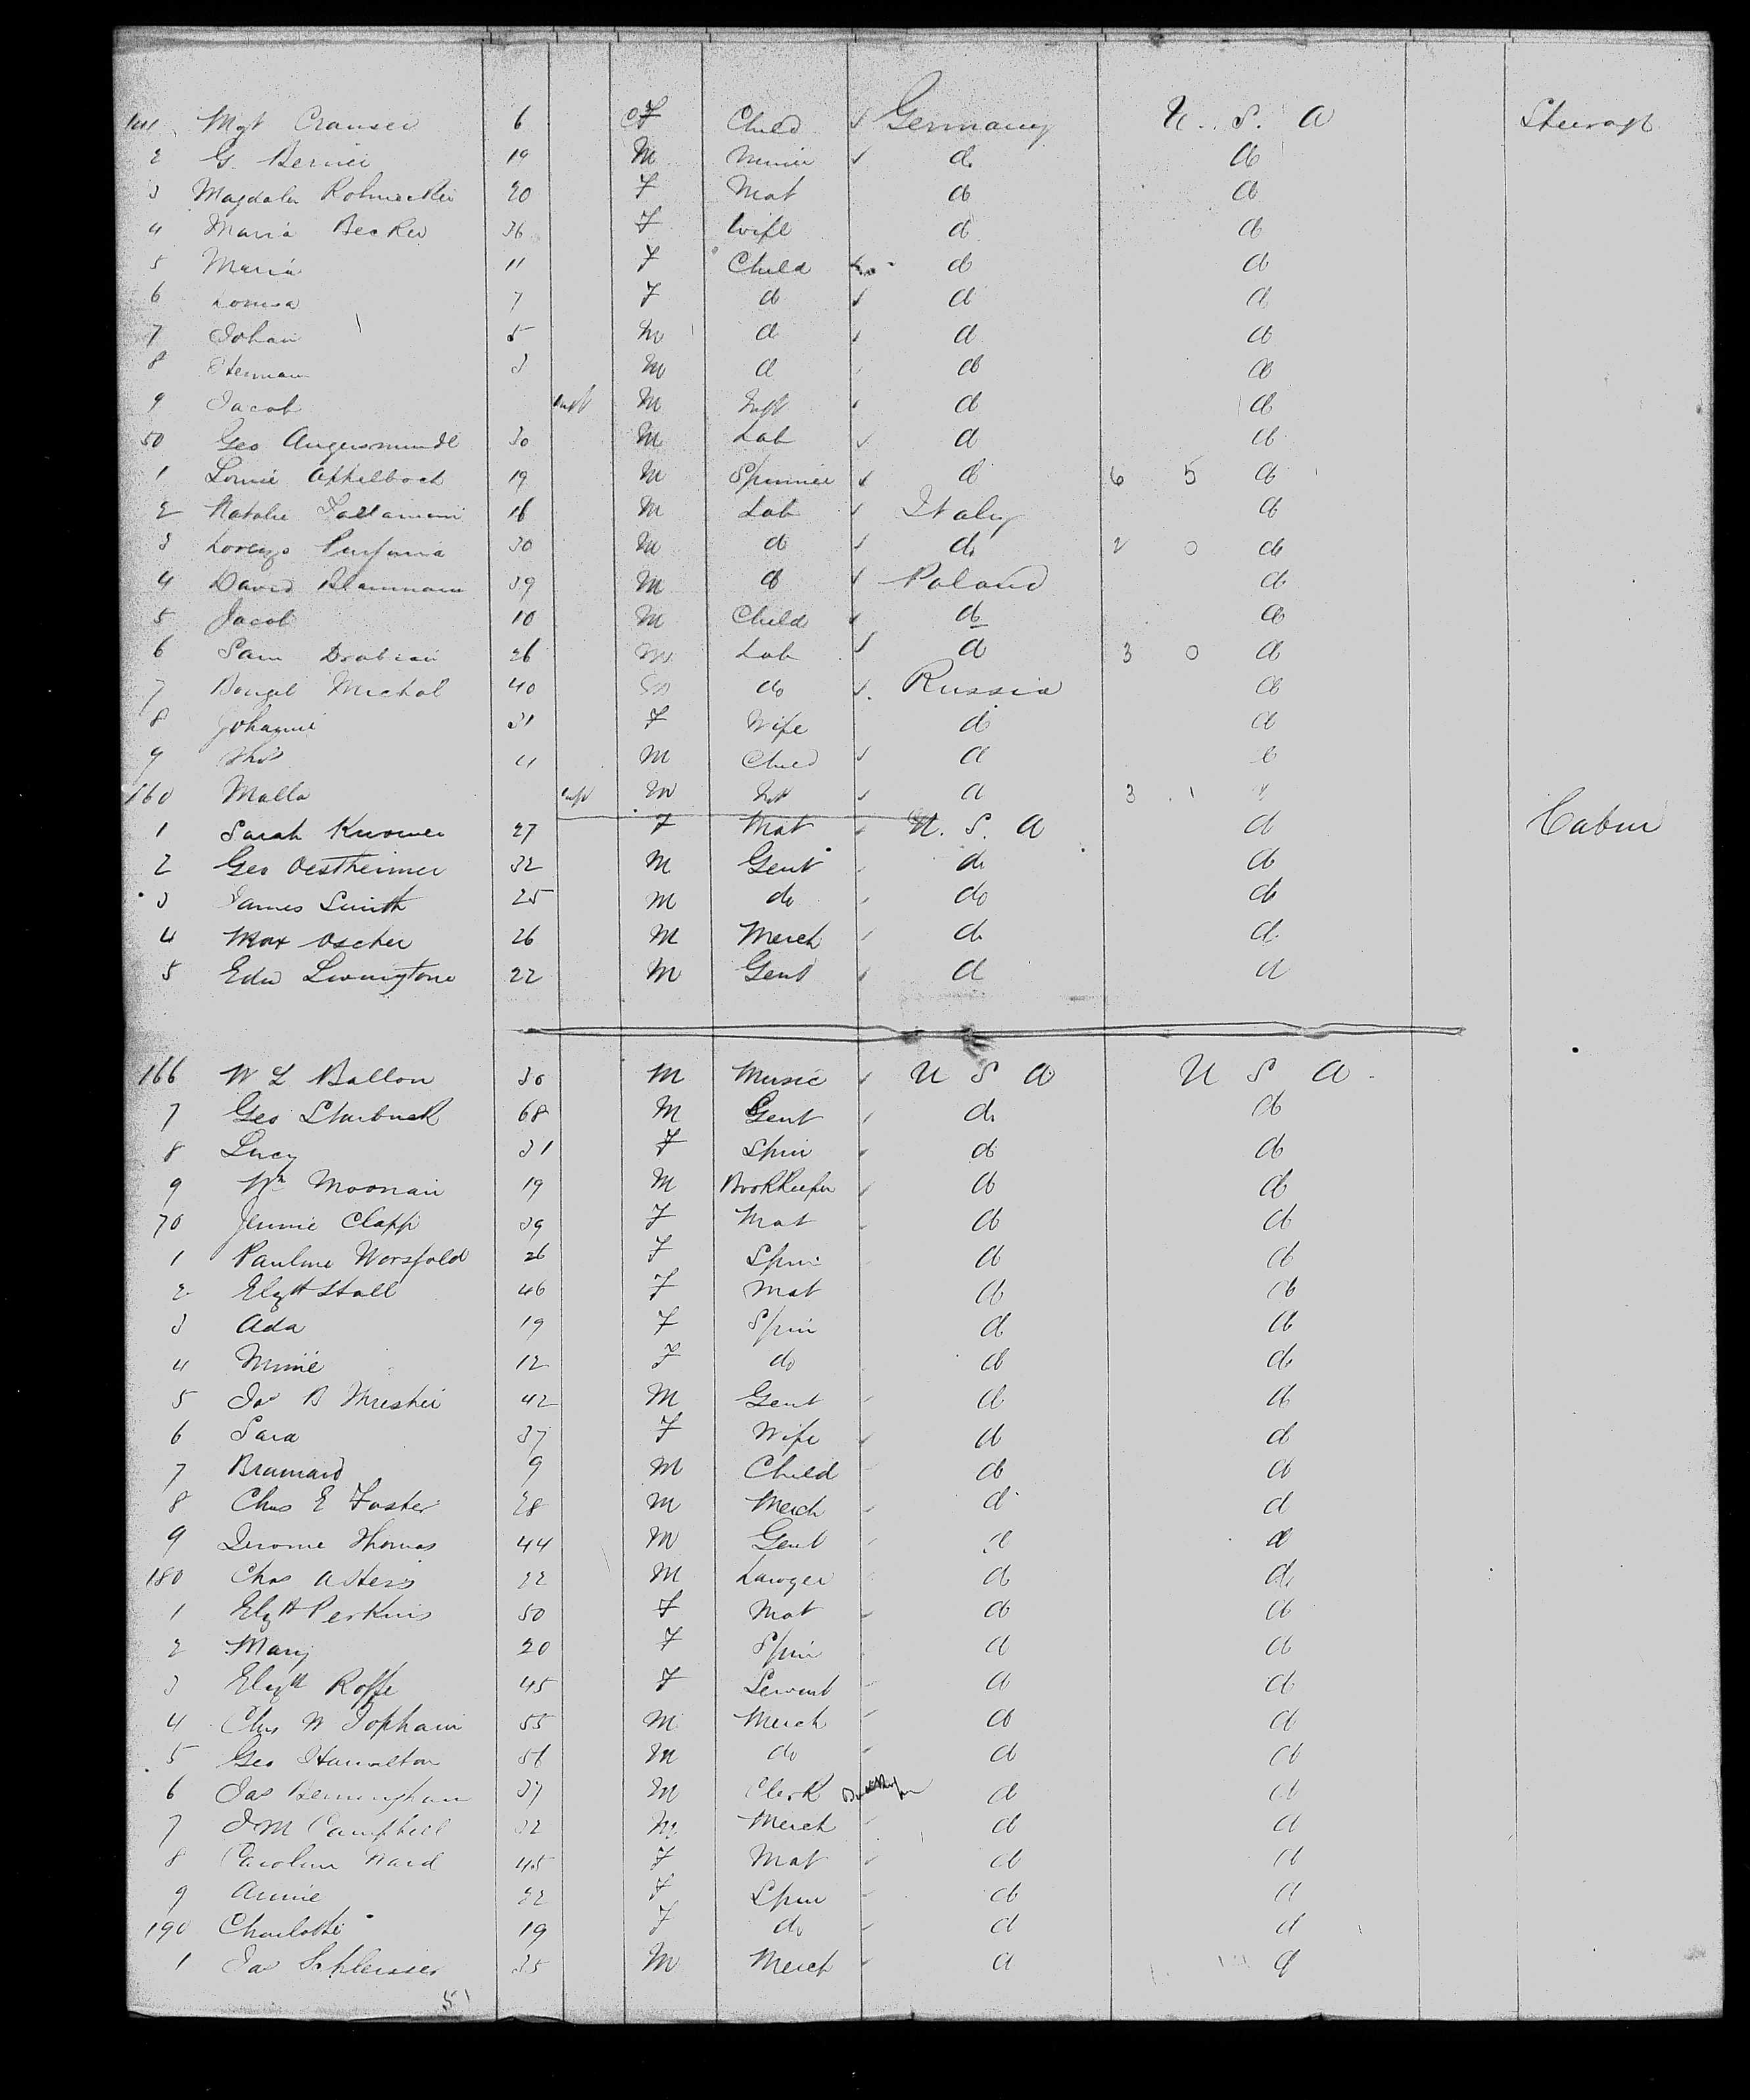 141 Mgt Cranser 6 F Child Germany U. S. A Steerage
2 G. Bernier 19 M Miner do do
3 Magdalen 20 F Mat do do
4 Maria Becker 36 F Wife do do
5 Maria 11 F Child do do
6 Louisa 7 F do do do
7 Johan 5 M do do do
8 Herman 3 M do do do
9 Jacob Inft M Inft do do
50 Geo Angersmundt 30 M Lab do do
1 Louie 19 M Spinner do 6 5 do
2 Natalie 16 M Lab Italy do
3 Lorenzo 30 M do do 2 0 do
4 David 39 M do Poland do
5 Jacob 10 M Child do do
6 Sam 26 M Lab do 3 0 do
7 Michal 40 M do Russia do
8 Johanni 31 F Wife do do
9 11 M Child do do
160 Malla Inft M Inft do 3 1 do
1 Sarah 27 F Mat U. S. A do Cabin
2 Geo Oestheimer 32 M Gent do do
3 James Smith 25 M do do do
4 Max Ascher 26 M Merch do do
5 Edw Livingstone 22 M Gent do do
166 W L Ballou 36 M Music U S A U S A
7 Geo Starbuck 68 M Gent do do
8 Lucy 31 F Spin do do
9 Wm Moonan 19 M Bookkeeper do do
70 Jennie Clapp 39 F Mat do do
1 Pauline Worsfold 26 F Spin do do
2 Elizth Stall 46 F Mat do do
3 Ada 19 F Spin do do
4 Minnie 12 F do do do
5 Jas B 42 M Gent do do
6 Sara 37 F Wife do do
7 Brainard 9 M Child do do
8 Chas E Foster 28 M Merch do do
9 Jerome Thomas 44 M Gent do do
180 Chas 22 M Lawyer do do
1 Elizth Perkins 50 F Mat do do
2 Mary 20 F Spin do do
3 Elizth Roffe 45 F Servant do do
4 Chas W Topham 55 M Merch do do
5 Geo Hamilton 56 M do do do
6 Jas Bermingham 37 M Clerk do do
7 J M Campbell 32 M Merch do do
8 Caroline Ward 45 F Mat do do
9 Annie 22 F Spin do do
190 Charlotte 19 F do do do
1 Jas Schleisser 35 M Merch do do
51